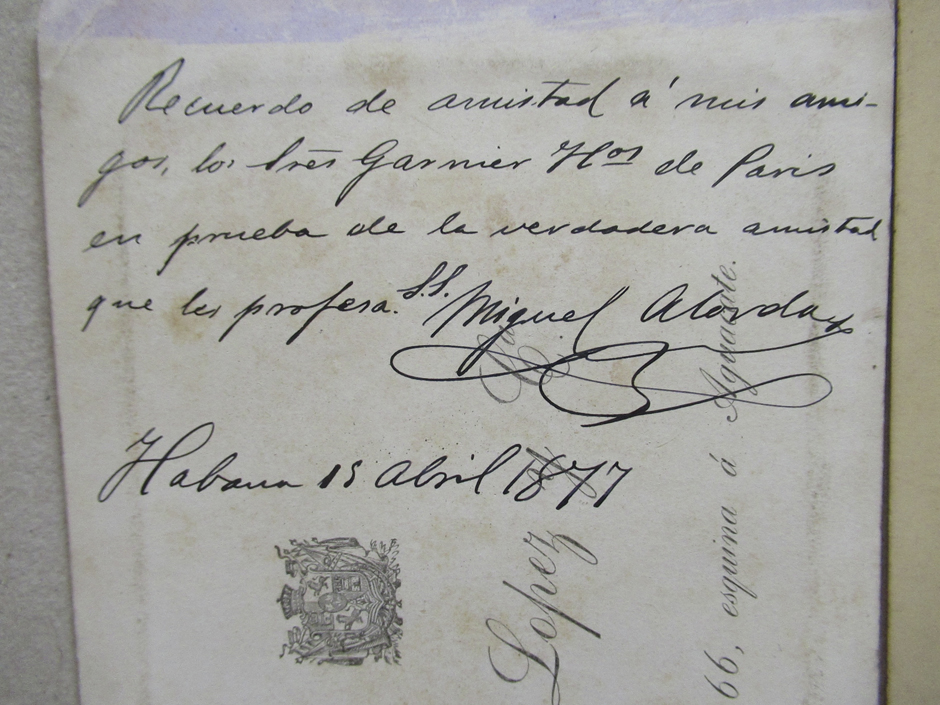 Recuerdo de amistad á mis ami-
gos, los trés Garnier Hos de Paris
en prueba de la verdadera amistad
que les profesa. S.S. Miguel Alorda
Habana 15 Abril 1877
Lopez y Ca
66, esquina á Aguacate.